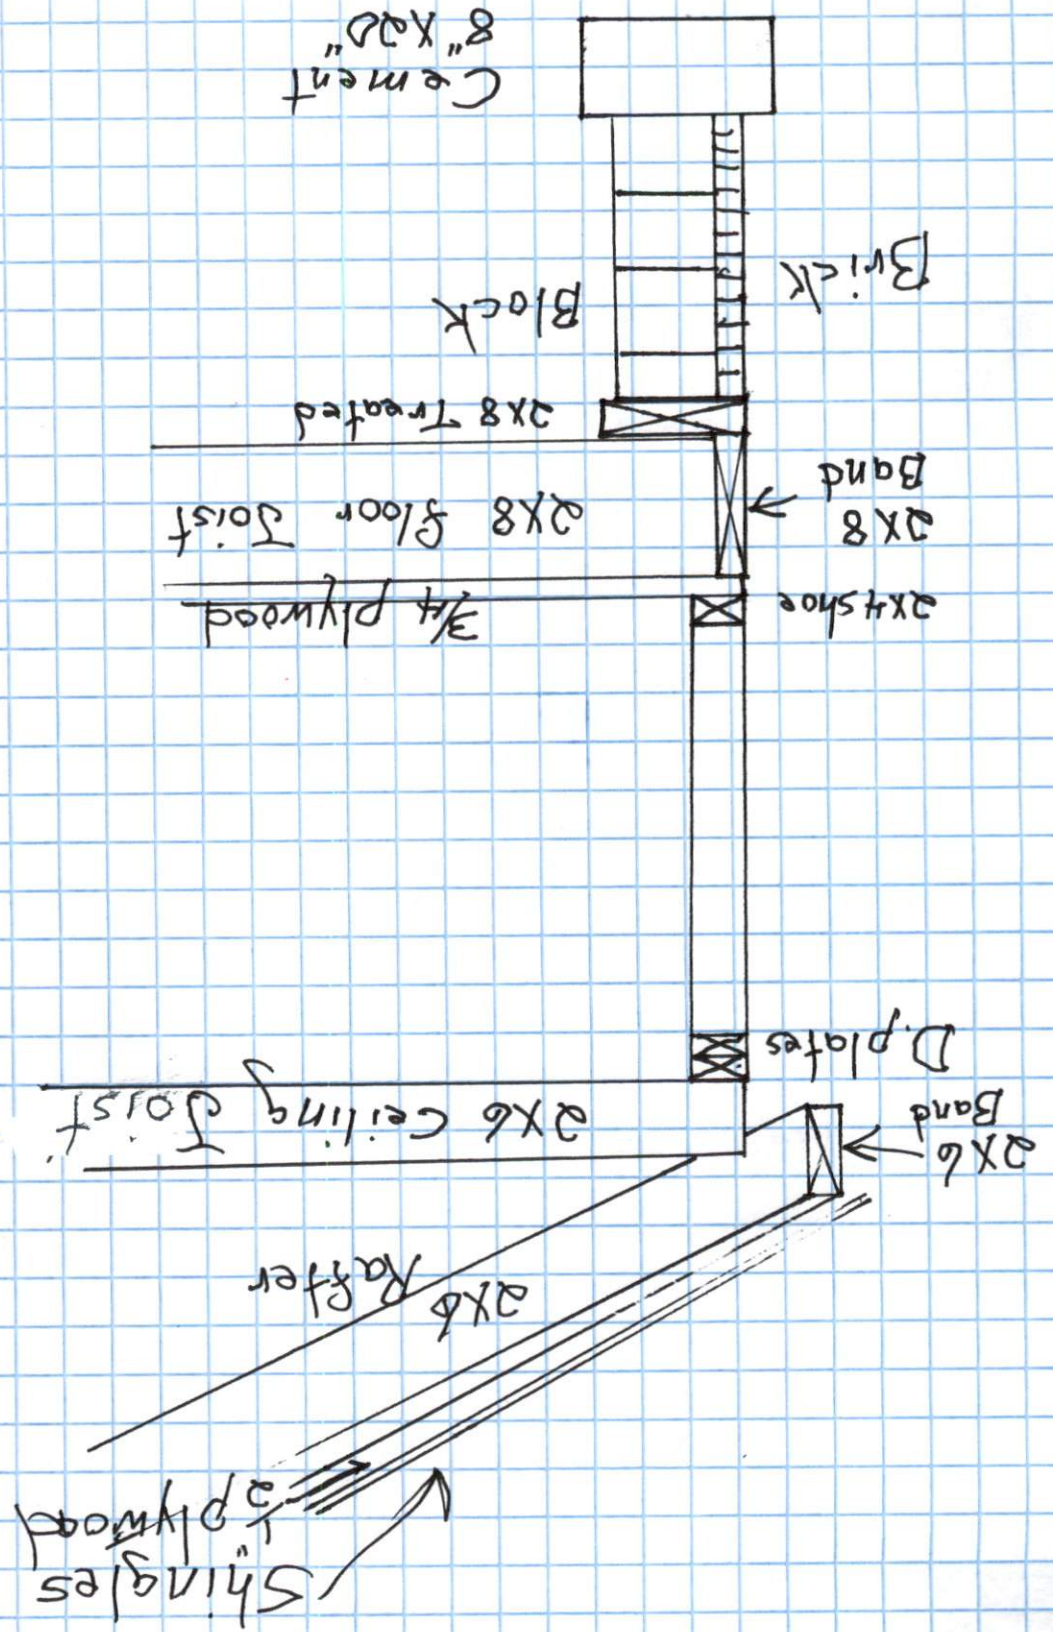 Shingles
1/2" plywood
2X6
Rafter
2X6
Band
2X6 Ceiling Joist
D. plates
2X4 shoe
3/4 plywood
2X8
Band
2X8 floor Joist
2X8 Treated
Block
Brick
Cement
8" X20"